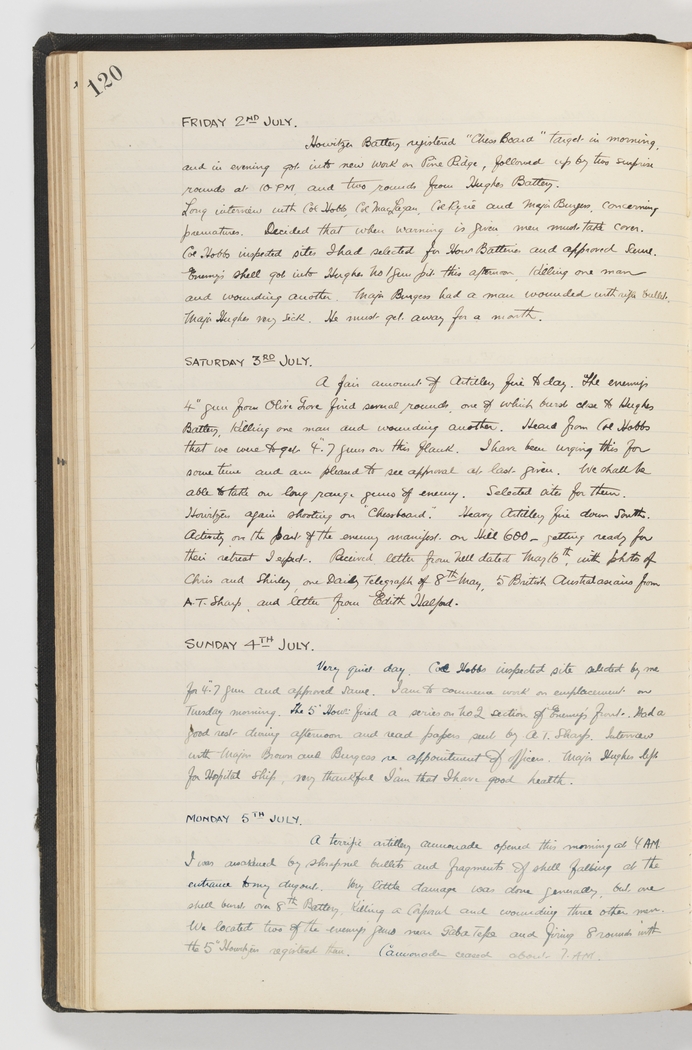 120
FRIDAY 2ND JULY.
Howitzer Battery registered "Chess Board" target in morning,
and in evening got into new work on Pine Ridge, followed up by two surprise
rounds at 10 PM, and two rounds from Hughes Battery.
Long interview with Col Hobbs, Col MacLagan, Col and Major Burgess, concerning
prematures. Decided that when warning is given men must take cover.
Col Hobbs inspected sites I had selected for How: Batteries and approved same.
Enemy's shell got into Hughes No 1 gun pit this afternoon, killing one man
and wounding another. Major Burgess had a man wounded with rifle bullet.
Major Hughes very sick. He must get away for a month.
SATURDAY 3RD JULY.
A fair amount of Artillery fire to day. The enemy's
4" gun from Olive Grove fired several rounds, one of which burst close to Hughes
Battery, killing one man and wounding another. Heard from Col Hobbs
that we were to get 4"·7 guns on this flank. I have been urging this for
some time and am pleased to see approval at last given. We shall be
able to take on long range guns of enemy. Selected sites for them.
Howitzers again shooting on "Chessboard." Heavy Artillery fire down South.
Activity on the part of the enemy manifest on Hill 600 – getting ready for
their retreat I expect. Received letter from Nell dated May 16th, with photo of
Chris and Shirley, one Daily Telegraph of 8TH May, 5 British Australasians from
A.T. Sharp, and letter from Edith Halford.
SUNDAY 4TH JULY.
Very quiet day. Col Hobbs inspected site selected by me
for 4"·7 gun and approved same. I am to commence work on emplacement on
Tuesday morning. The 5" How: fired a series on No 2 section of Enemy's front. Had a
good rest during afternoon and read papers sent by A.T. Sharp. Interview
with Major Brown and Burgess re appointment of officers. Major Hughes left
for Hospital Ship, very thankful I am that I have good health.
MONDAY 5TH JULY.
A terrific artillery cannonade opened this morning at 4 AM
I was awakened by shrapnel bullets and fragments of shell falling at the
entrance to my dugout. Very little damage was done generally, but one
shell burst over 8th Battery, killing a Corporal and wounding three other men.
We located two of the enemy's guns near Gaba Tepe and firing 8 rounds with
the 5" Howitzer registered them. Cannonade ceased about 7 AM.